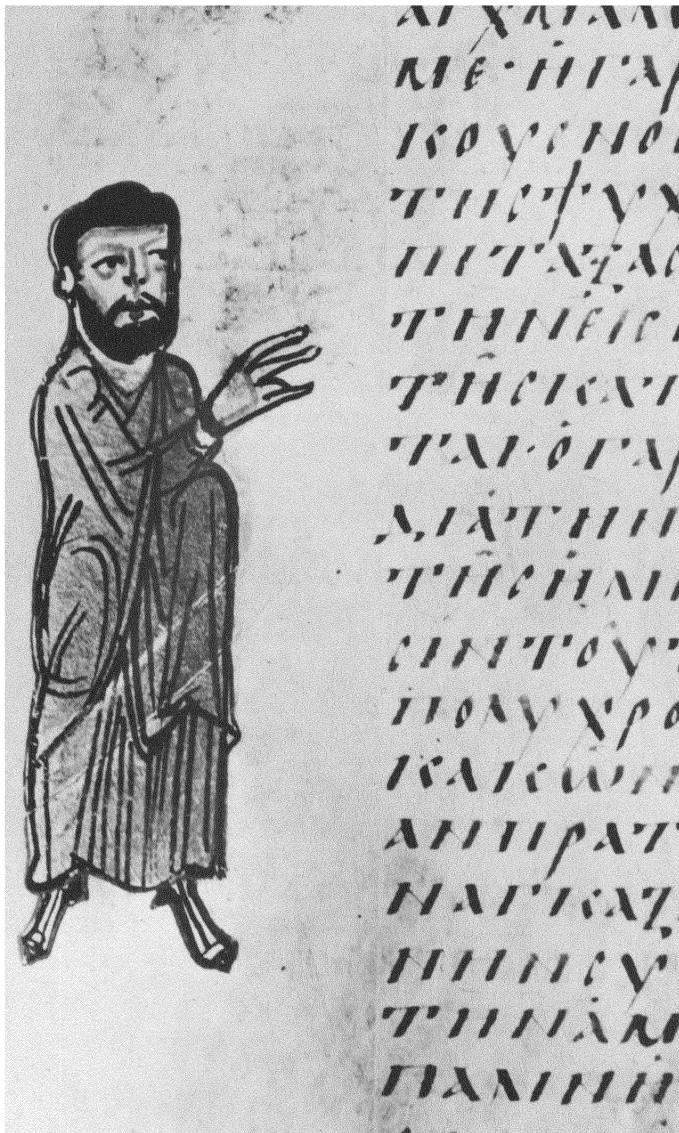 ΜΕ· ἩΓΑΡ
ΚΟΥΣΝΟ
ΤΗΣΨΥΧ
ΠΙΤΑΖΑΣ
ΤΗΝΕΙΣ
ΤΗΣΙΚΑΙ
ΤΑΙ· ΟΓΑΡ
ΔΙΑΤΗΝ
ΤΗΣΗΛΙ
ΣΙΝΤΟΥΤ
ΠΟΛΥΧΡΟ
ΚΑΚΩΝ
ΑΝΠΡΑΤ
ΝΑΓΚΑΖ
ΝΗΝΣΥ
ΤΗΝΑΜ
ΠΑΛΙΝΗ